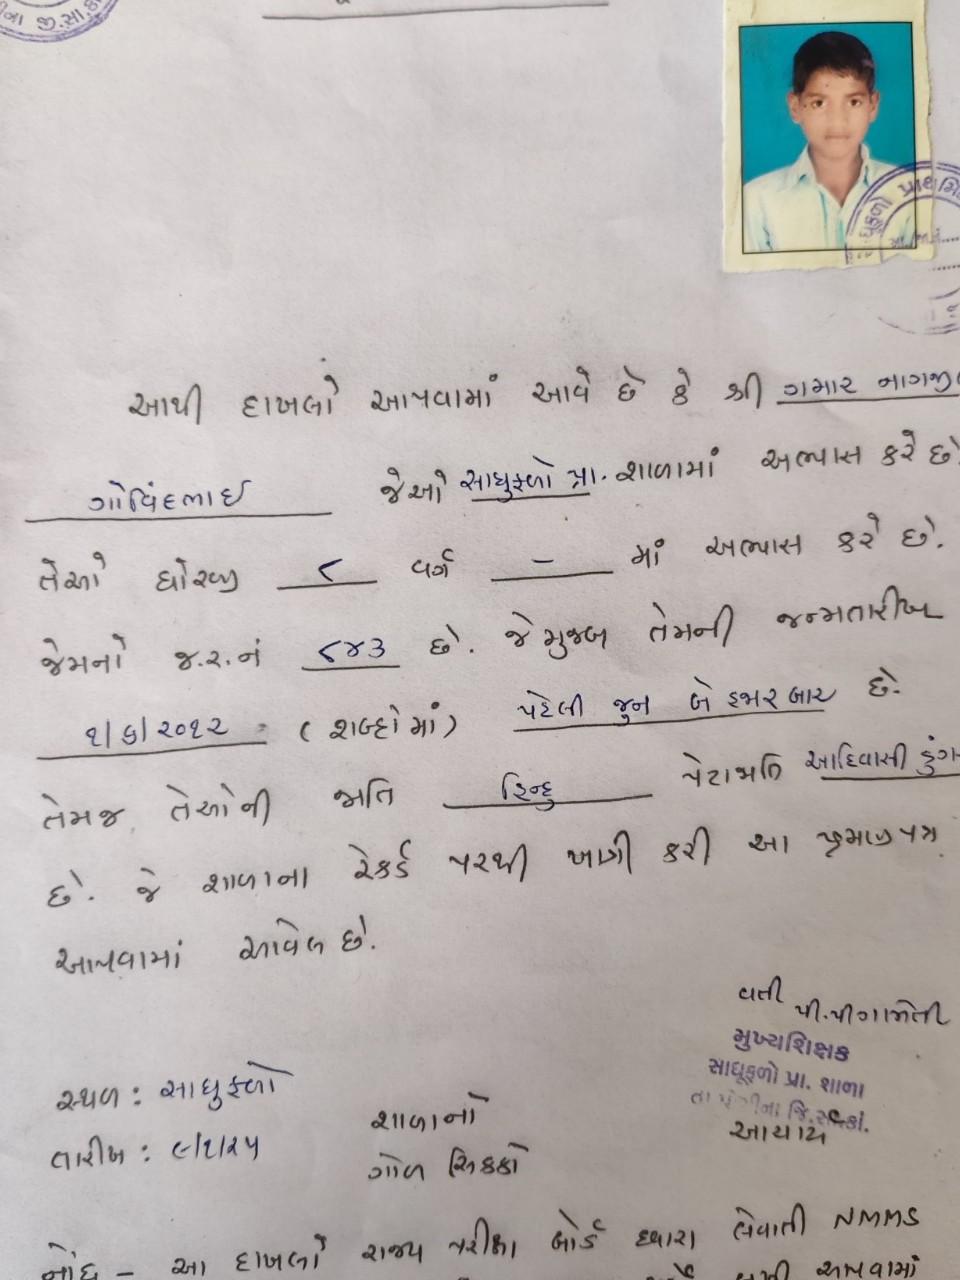 ના જી.સા.કાં
પ્રાથમિ
આથી દાખલો આપવામાં આવે છે કે શ્રી ગમાર નાગજી
ગોવિંદભાઈ જેઓ સાધુફળો પ્રા. શાળામાં અભ્યાસ કરે છે.
તેઓ ધોરણ ૮ વર્ગ – માં અભ્યાસ કરે છે.
જેમનો જ.ર.નં ૮૪૩ છે. જે મુજબ તેમની જન્મતારીખ
૧/૬/૨૦૧૨ (શબ્દોમાં) પહેલી જુન બે હજાર બાર છે.
તેમજ તેઓની જાતિ હિન્દુ પેટાજાતિ આદિવાસી ડુંગ
છે. જે શાળાના રેકર્ડ પરથી ખાત્રી કરી આ પ્રમાણપત્ર
આપવામાં આવેલ છે.
વતી
પી.પી ગામેતી
મુખ્યશિક્ષક
સાધૂફળો પ્રા. શાળા
સ્થળ : સાધુફળો
શાળાનો
આચાર્ય
તારીખ : ૯/૧/૨૫
ગોળ સિક્કો
નોંધ – આ દાખલો રાજ્ય પરીક્ષા બોર્ડ ધ્વારા લેવાતી NMMS
આપવામાં